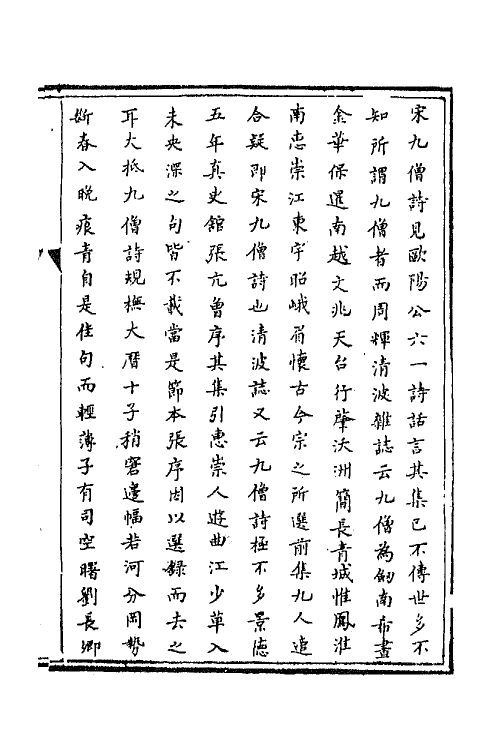 宋九僧詩見歐陽公六一詩話言其集已不傳世多不
知所謂九僧者而周輝清波雜誌云九僧為劒南希晝
金華保暹南越文兆天台行肇沃洲簡長青城惟鳳淮
南惠崇江東宇昭峨眉懷古今宗之所選前集九人追
合疑即宋九僧詩也清波誌又云九僧詩極不多景德
五年真史館張亢曾序其集引惠崇人遊曲江少草入
未央深之句皆不載當是節本張序因以選録而去之
耳大抵九僧詩規橅大曆十子稍窘邊幅若河分岡勢
斷春入晚痕青自是佳句而輕薄子有司空曙劉長卿